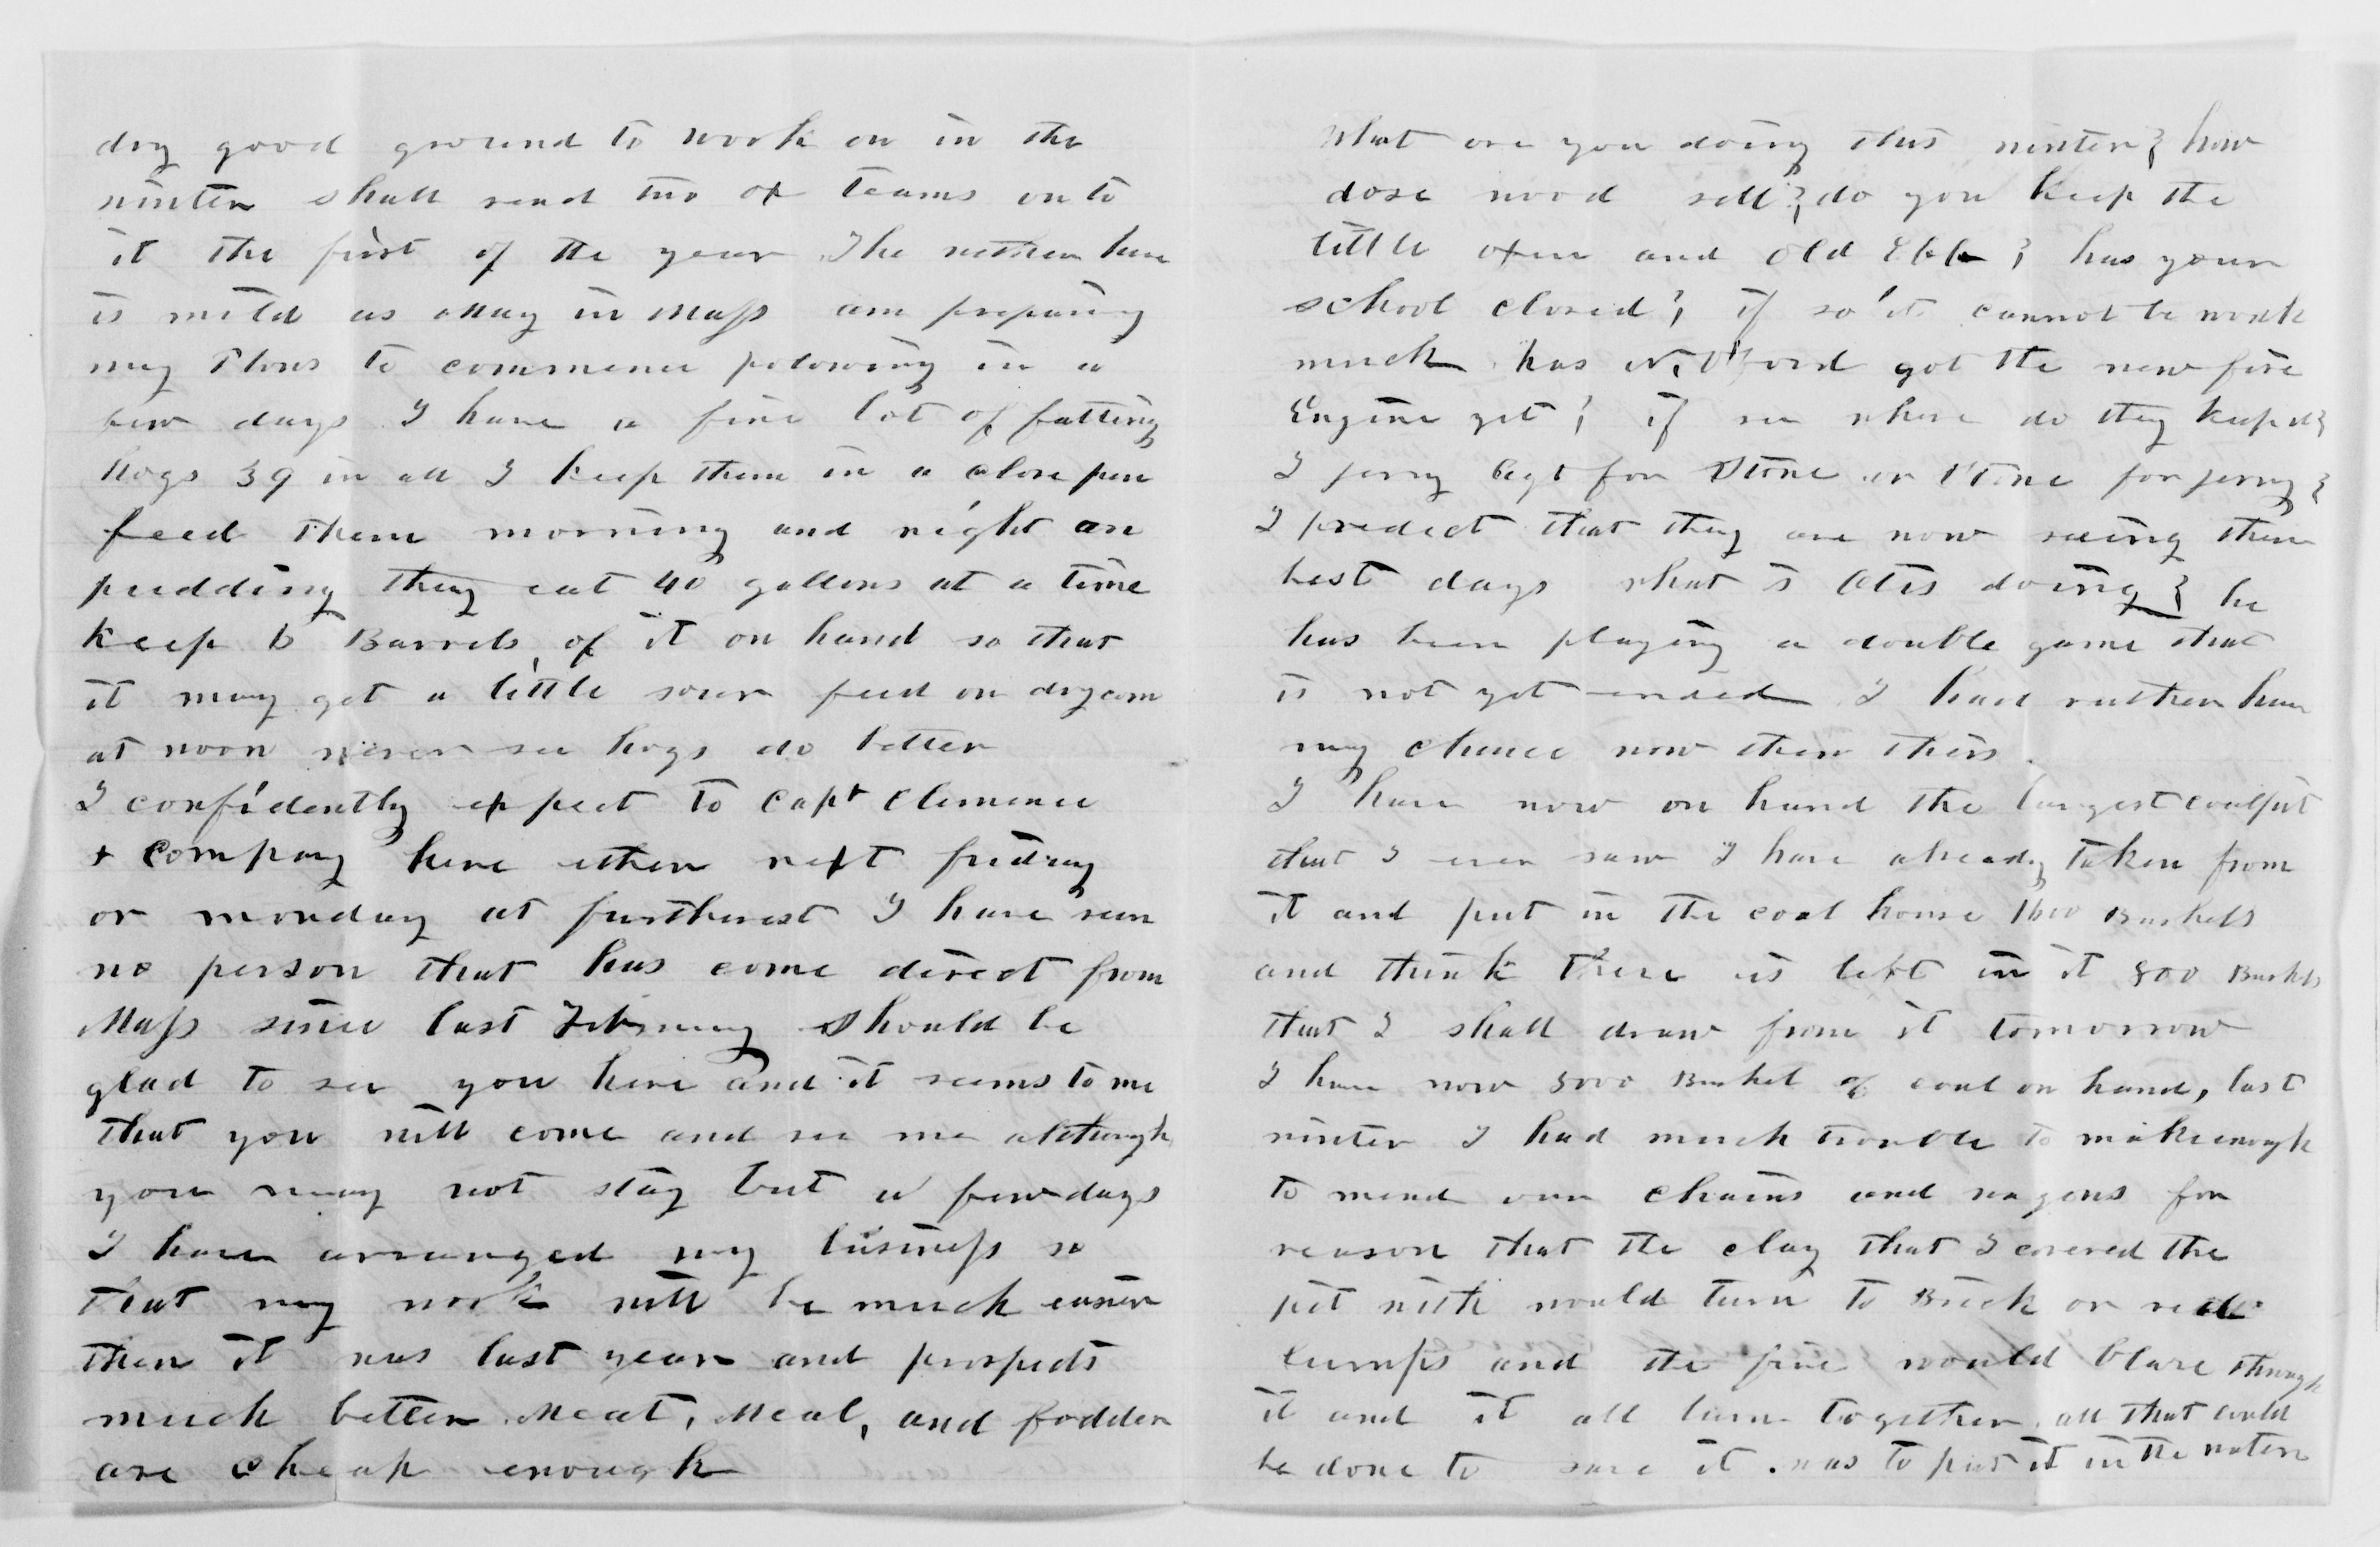 dry good ground to work on in the
winter shall send two ox teams on to
it the first of the year The wether here
is mild as May in Mass am preparing
my Plows to commence polowing in a
few days I have a fine lot of fatting
hogs 39 in all I keep them in a close pen
feed them morning and night on
pudding they eat 40 gallons at a time
keep 6 Barrels of it on hand so that
it may get a little sour feed on dry corn
at noon never see hogs do better
I confidently expect to Capt Clemence
+ Company here ether next friday
or monday at furtherest I have seen
no person that has come direct from
Mass since last February Should be
glad to see you here and it seems to me
that you will come and see me although
you may not stay but a few days
I have arranged my business so
that my work will be much easier
then it was last year and prospects
much better Meat, Meal, and fodder
are cheap enough
What are you doing this winter? how
dose wood sell? do you keep the
little oxen and old ? has your
school closed? if so it cannot be worth
much has got the new fire
Engine yet? if so where do they keep it?
I jerry Agt for Stone or Stone for jerry?
I predict that they are now seeing there
best days what is Otis doing? he
has been playing a double game that
is not yet ended I had rather have
my chance now then theirs.
I have now on hand the largest coalpit
that I ever saw I have already taken from
it and put in the coal house 1600 Bushels
and think there is left in it 800 Bushels
that I shall draw from it tomorrow
I have now 3000 Bushel of coal on hand, last
winter I had much trouble to make enough
to mend our chains and wagons for
reason that the clay that I covered the
pit with would turn to Brick or red
lumps and the fire would blare through
it and it all burn together all that could
be done to save it was to put it in the water